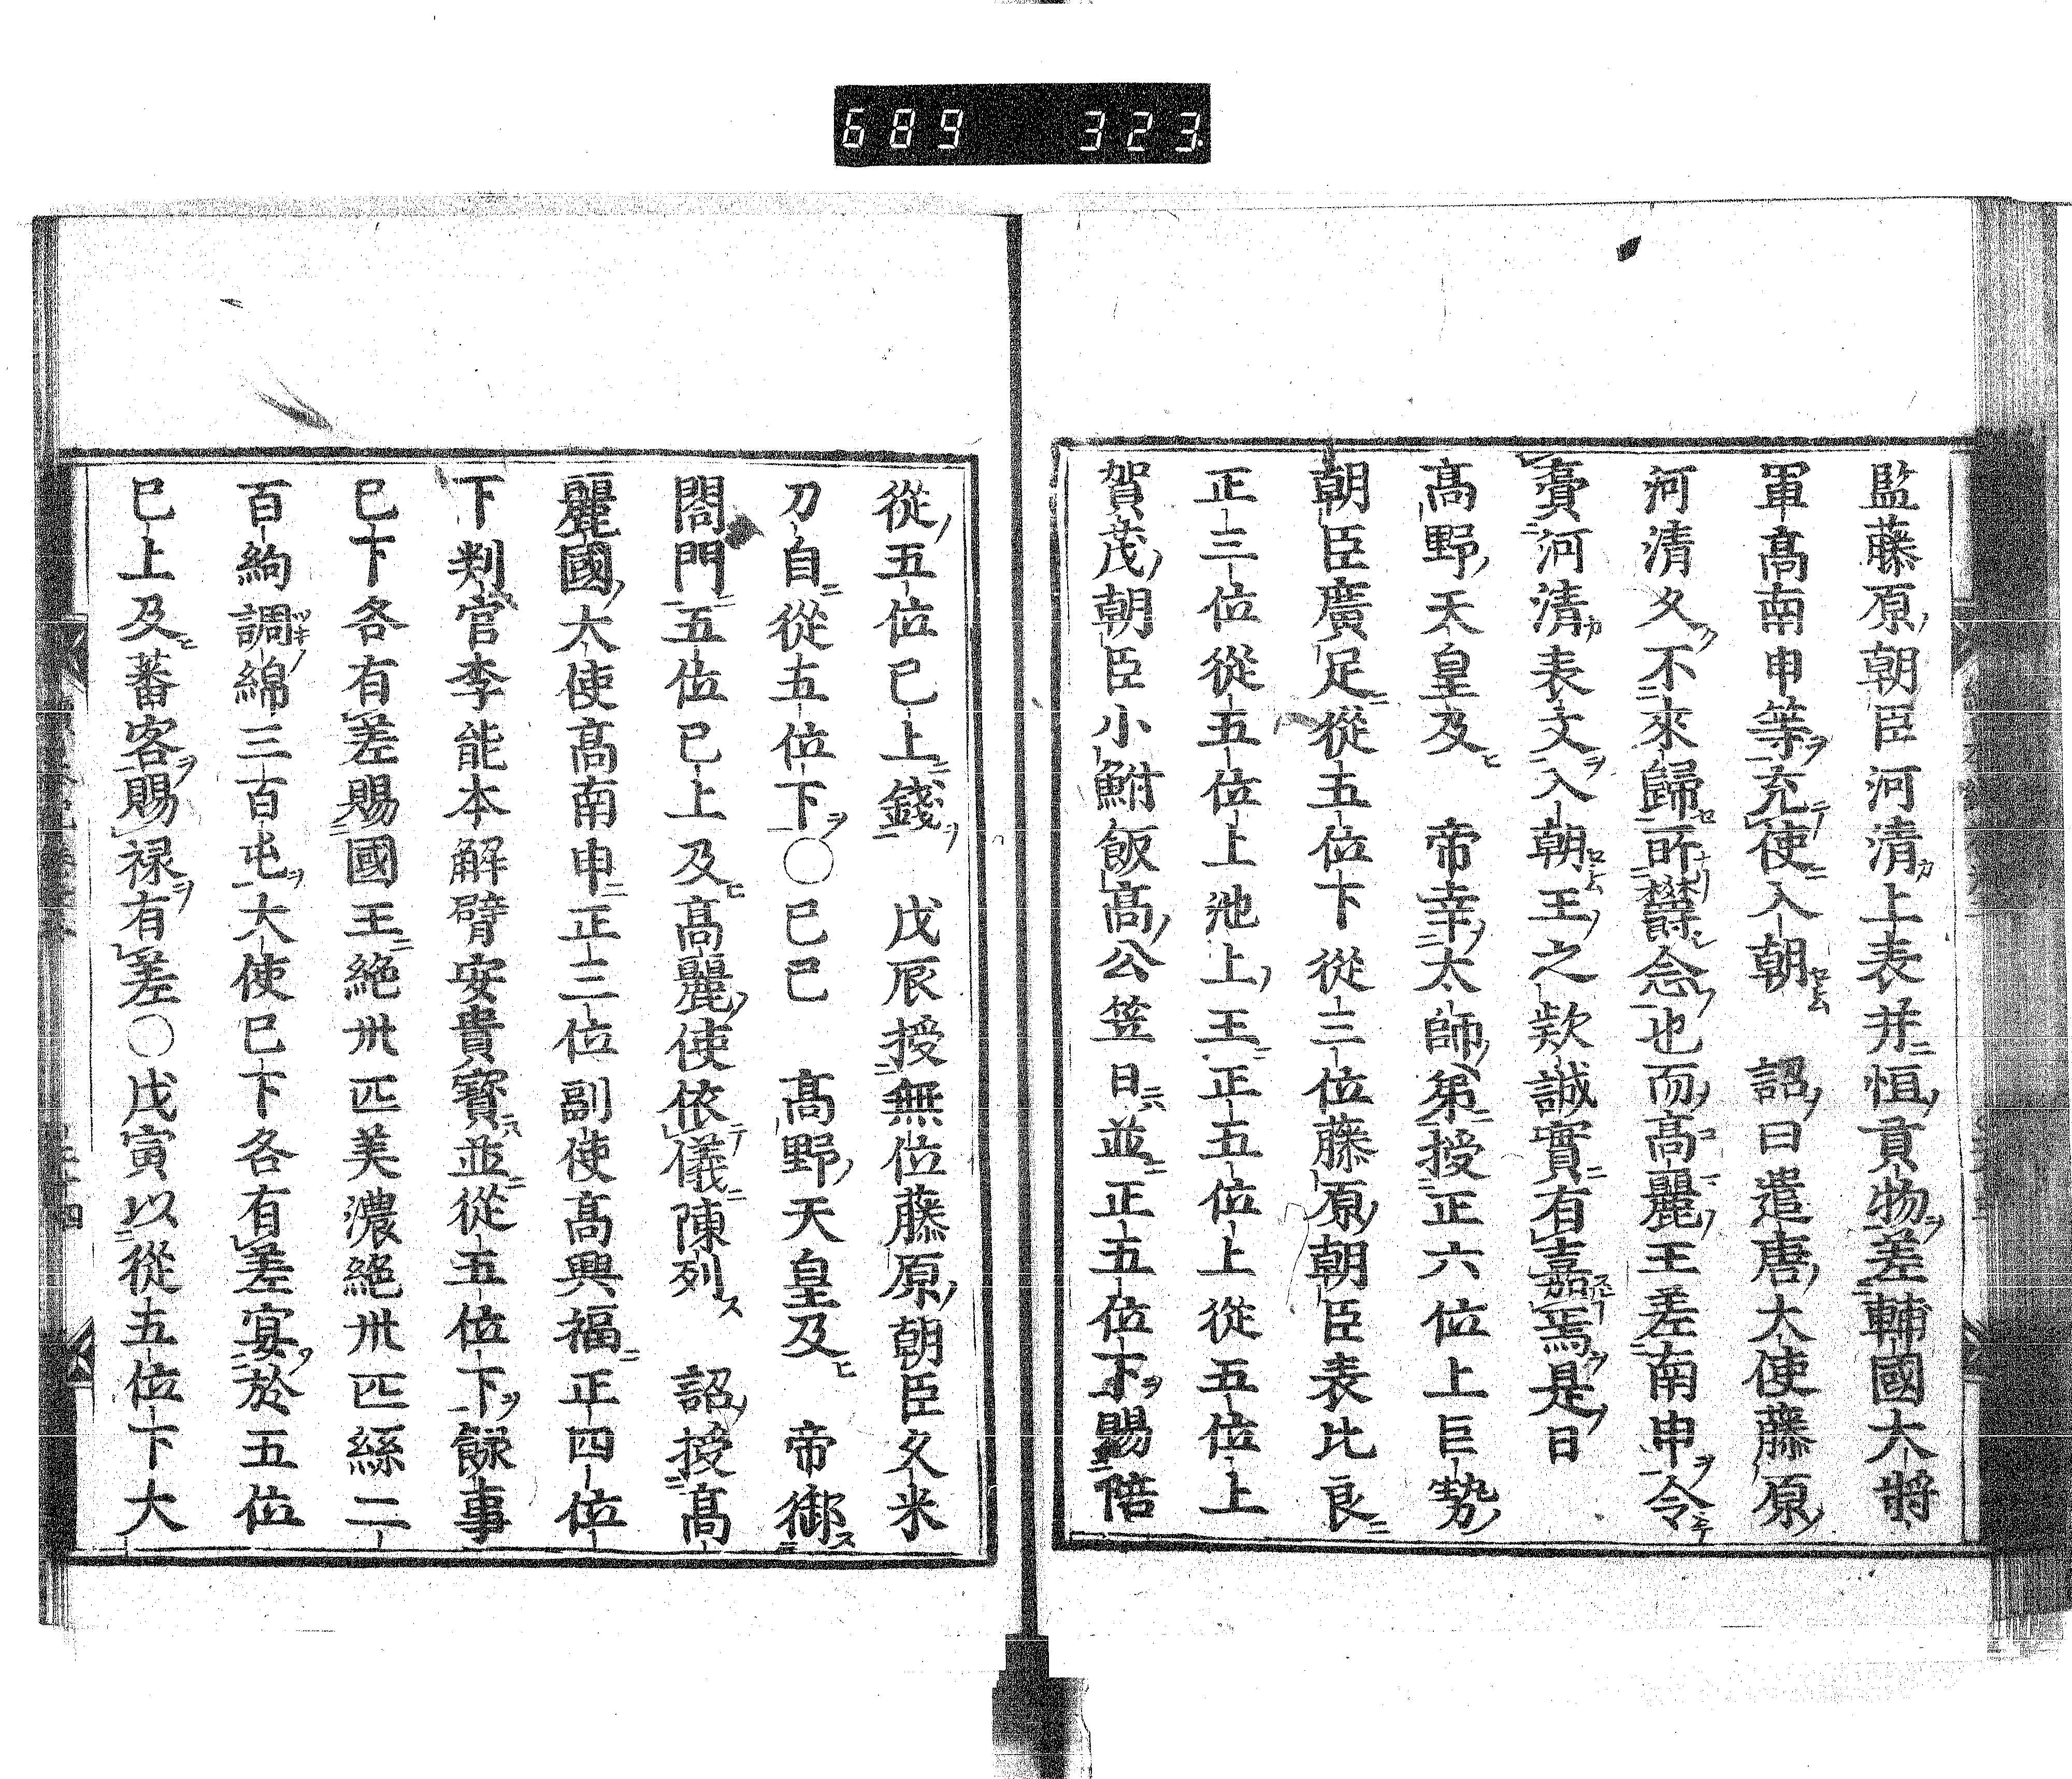 689 323
監藤原朝臣河清上表并恒貢物差輔國大將
軍髙南申等充使入朝 詔曰遣唐大使藤原
河清久不來歸所鬱念也而髙麗王差南申令
賷河清表文入朝王之欵誠實有嘉焉是日
髙野天皇及 帝幸太師苐授正六位上巨勢
朝臣廣足從五位下從三位藤原朝臣表比良
正三位從五位上池上王正五位上從五位上
賀茂朝臣小鮒飯髙公笠目並正五位下賜陪
從五位已上錢 戊辰授無位藤原朝臣久米
刀自從五位下〇己巳 髙野天皇及 帝御
閤門五位已上及髙麗使依儀陳列 詔授髙
麗國大使髙南申正三位副使髙興福正四位
下判官李能本解臂安貴寳並從五位下錄事
已下各有差賜國王絁卅匹美濃絁卅匹絲二
百絇調綿三百屯大使已下各有差宴於五位
已上及蕃客賜禄有差〇戊寅以從五位下大